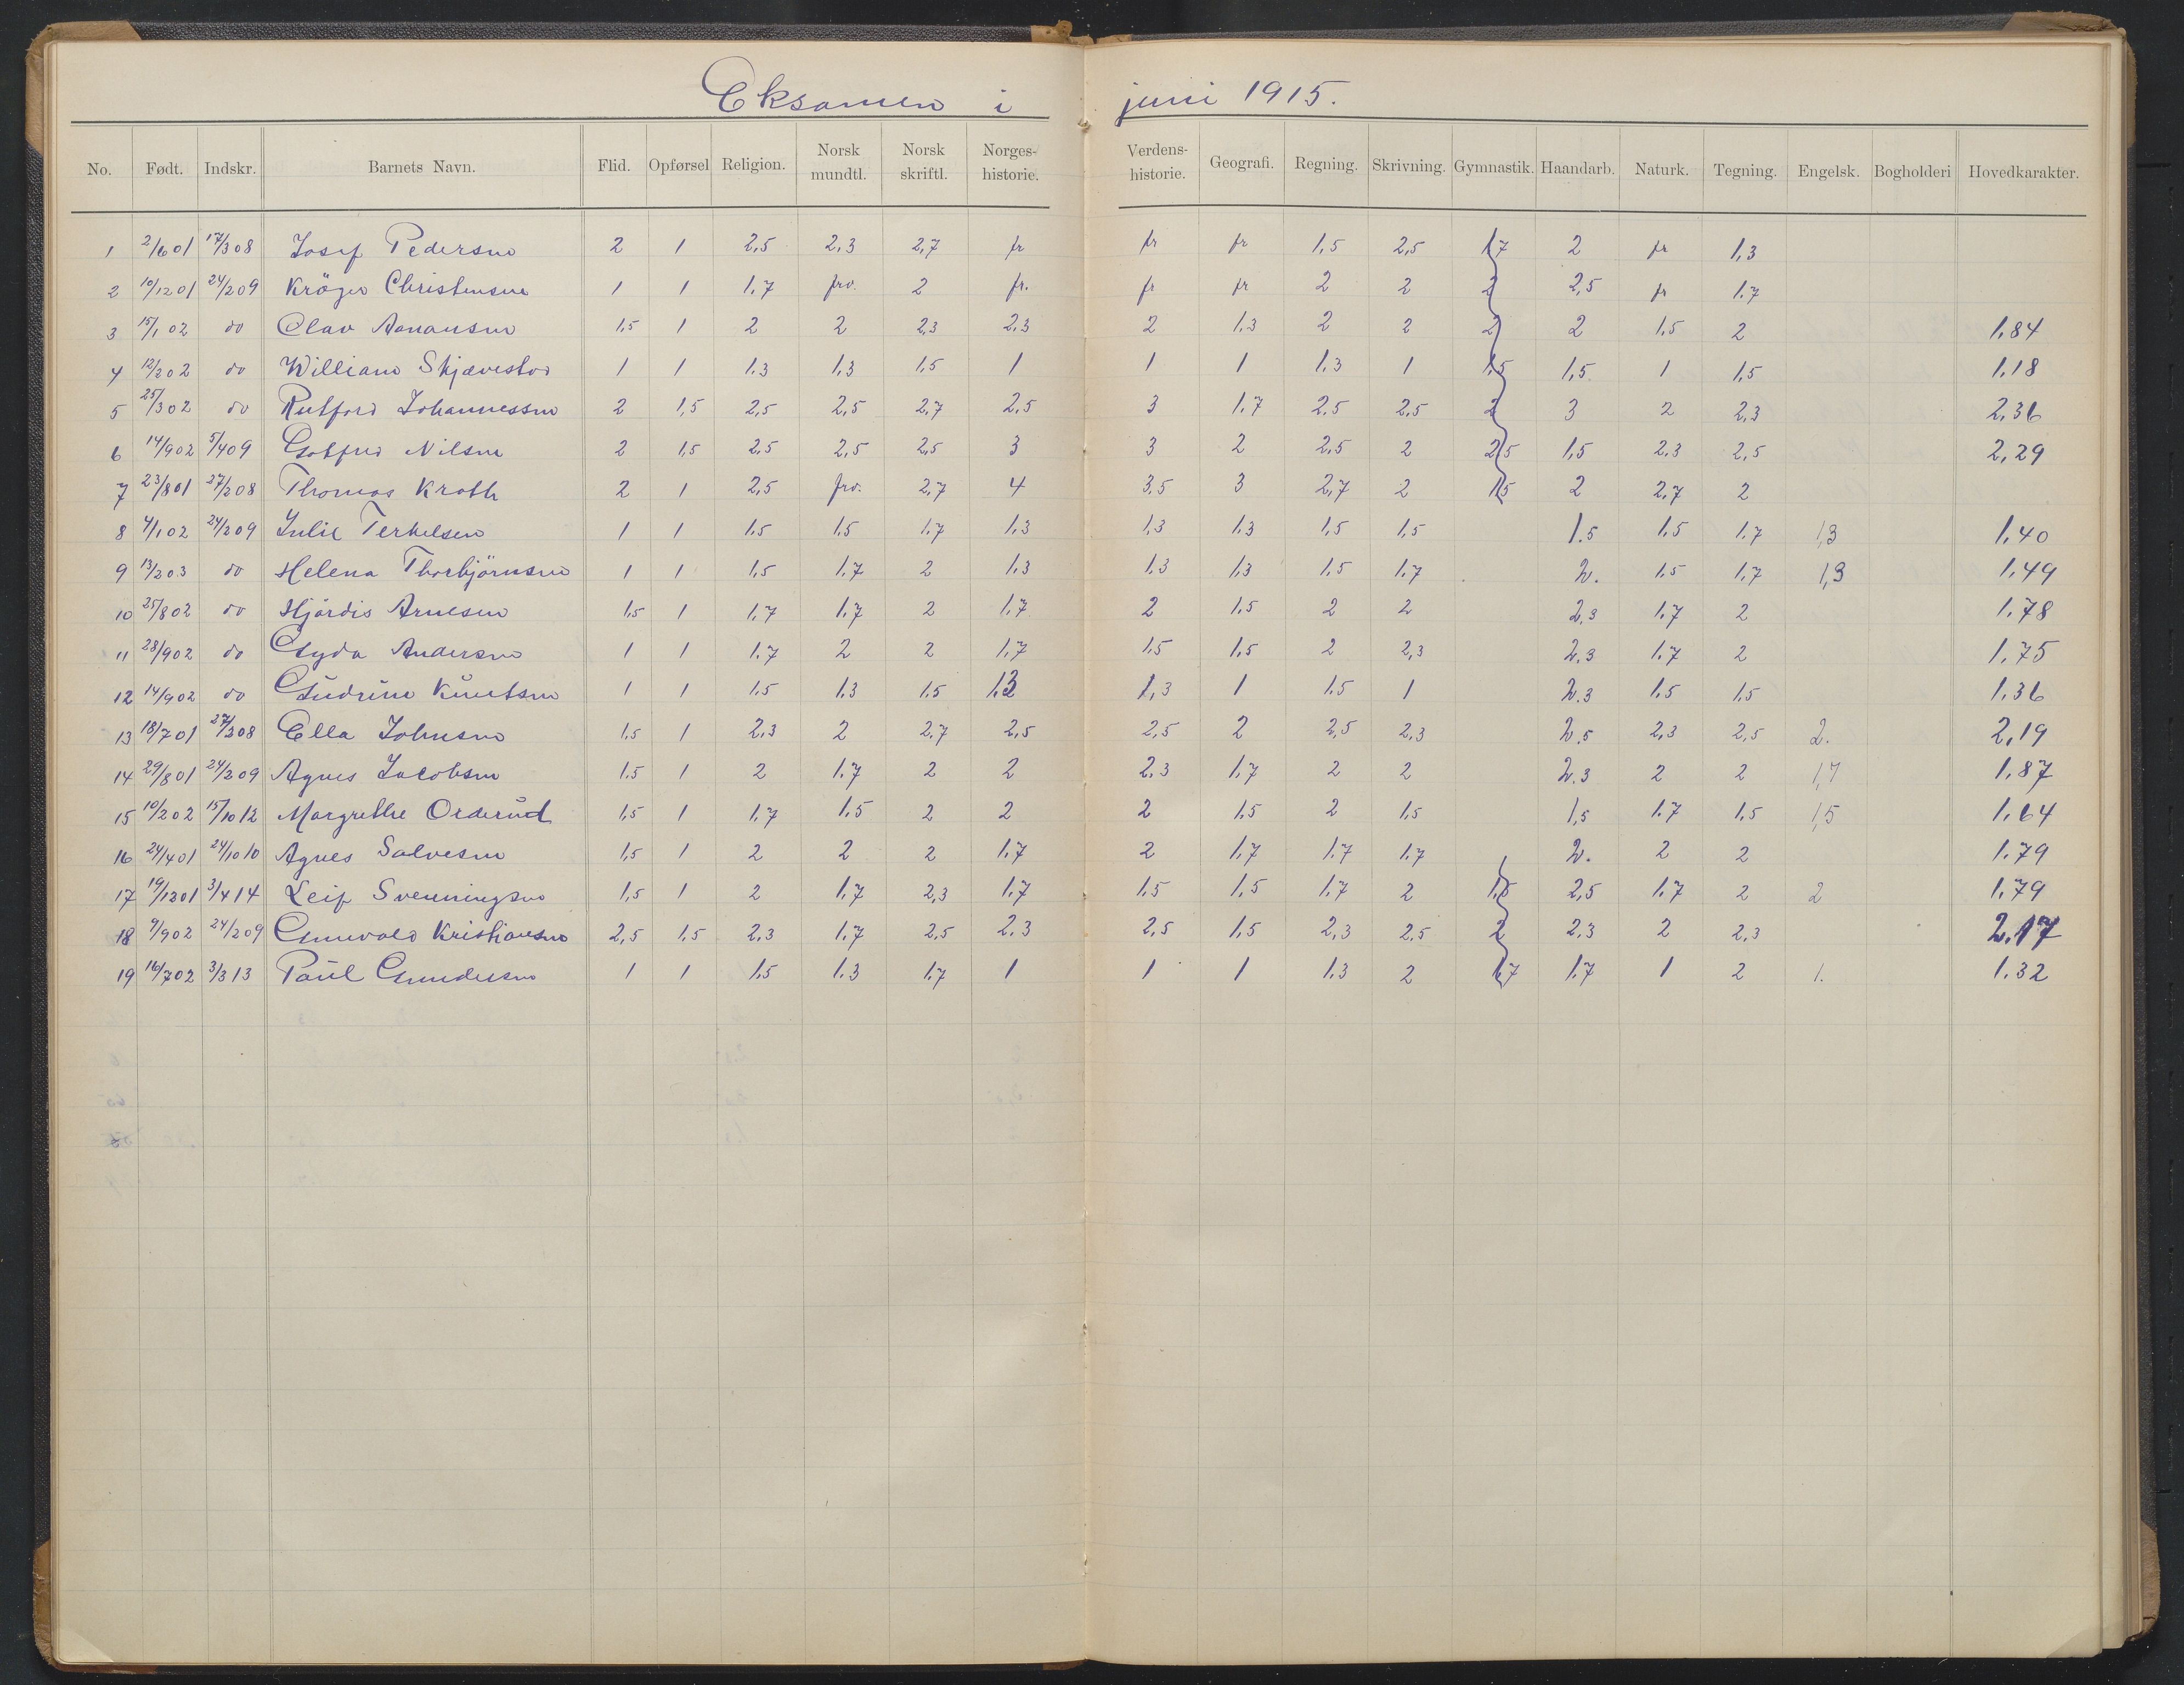 Eksamen i juni 1915.
No. Født. Indskr. Barnets Navn. Flid. Opførsel Religion. Norsk mundtl. Norsk skriftl. Norges-historie. Verdens-historie. Geografi. Regning. Skrivning. Gymnastik. Haandarb. Naturk. Tegning. Engelsk. Bogholderi Hovedkarakter.
1 2/6 01 17/3 08 Josef Pedersen 2 1 2,5 2,3 2,7 fr fr fr 1,5 2,5 1,7 2 fr 1,3
2 10/12 01 24/2 09 Kröger Christensen 1 1 1,7 frv. 2 fr. fr fr 2 2 2 2,5 fr 1,7
3 15/1 02 do Olav Aanansen 1,5 1 2 2 2,3 2,3 2 1,3 2 2 2 2 1,5 2 1,84
4 12/2 02 do William Skjævestad 1 1 1,3 1,3 1,5 1 1 1 1,3 1 1,5 1,5 1 1,5 1,18
5 25/3 02 do Rutford Johannessen 2 1,5 2,5 2,5 2,7 2,5 3 1,7 2,5 2,5 2 3 2 2,3 2,36
6 14/9 02 5/4 09 Gotfred Nilsen 2 1,5 2,5 2,5 2,5 3 3 2 2,5 2 2,5 1,5 2,3 2,5 2,29
7 23/8 01 27/2 08 Thomas Kroth 2 1 2,5 frv. 2,7 4 3,5 3 2,7 2 1,5 2 2,7 2
8 4/1 02 24/2 09 Julie Terkelsen 1 1 1,5 1,5 1,7 1,3 1,3 1,3 1,5 1,5 1.5 1,5 1,7 1,3 1,40
9 13/2 03 do Helena Thorbjörnsen 1 1 1,5 1,7 2 1,3 1,3 1,3 1,5 1,7 2. 1,5 1,7 1,3 1,49
10 25/8 02 do Hjördis Arnesen 1,5 1 1,7 1,7 2 1,7 2 1,5 2 2 2,3 1,7 2 1,78
11 28/9 02 do Gyda Andersen 1 1 1,7 2 2 1,7 1,5 1,5 2 2,3 2.3 1,7 2 1,75
12 14/9 02 do Gudrun Knutsen 1 1 1,5 1,3 1,5 1,3 1,3 1 1,5 1 2.3 1,5 1,5 1,36
13 18/7 01 27/2 08 Ella Johnsen 1,5 1 2,3 2 2,7 2,5 2,5 2 2,5 2,3 2.5 2,3 2,5 2. 2,19
14 29/8 01 24/2 09 Agnes Jacobsen 1,5 1 2 1,7 2 2 2,3 1,7 2 2 2.3 2 2 1,7 1,87
15 10/2 02 15/10 12 Margrethe Orderud 1,5 1 1,7 1,5 2 2 2 1,5 2 1,5 1,5 1,7 1,5 1,5 1,64
16 24/4 01 24/10 10 Agnes Salvesen 1,5 1 2 2 2 1,7 2 1,7 1,7 1,7 2. 2 2 1,79
17 19/12 01 3/4 14 Leif Svenningsen 1,5 1 2 1,7 2,3 1,7 1,5 1,5 1,7 2 1,5 2,5 1,7 2 2 1,79
18 9/9 02 24/2 09 Gunvald Kristiansen 2,5 1,5 2,3 1,7 2,5 2,3 2,5 1,5 2,3 2,5 2 2,3 2 2,3 2,17
19 16/7 02 3/3 13 Paul Gundersen 1 1 1,5 1,3 1,7 1 1 1 1,3 2 1,7 1,7 1 2 1. 1,32